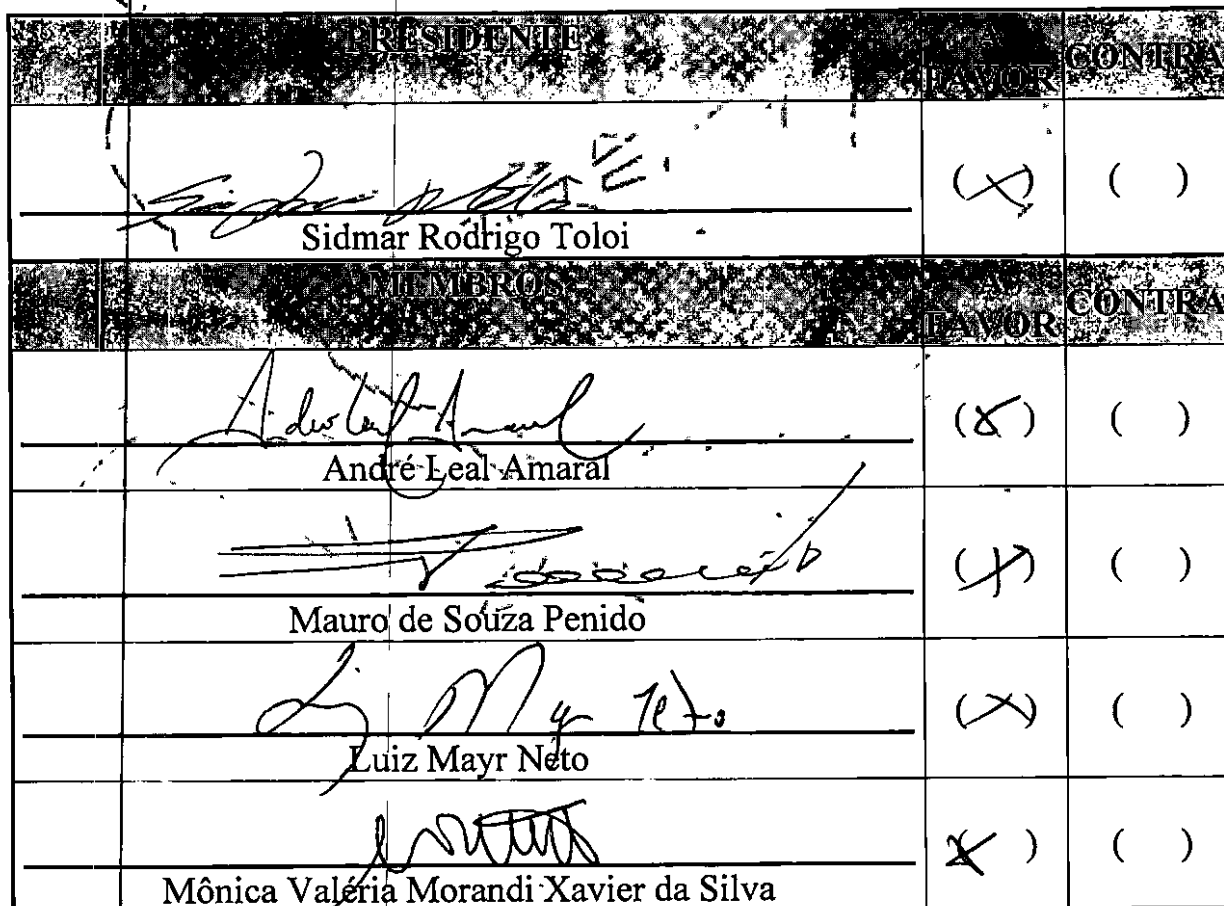 PRESIDENTE A FAVOR CONTRA
(X) ( )
Sidmar Rodrigo Toloi
MEMBROS A FAVOR CONTRA
(X) ( )
André Leal Amaral
(X) ( )
Mauro de Souza Penido
(X) ( )
Luiz Mayr Neto
(X ) ( )
Mônica Valéria Morandi Xavier da Silva